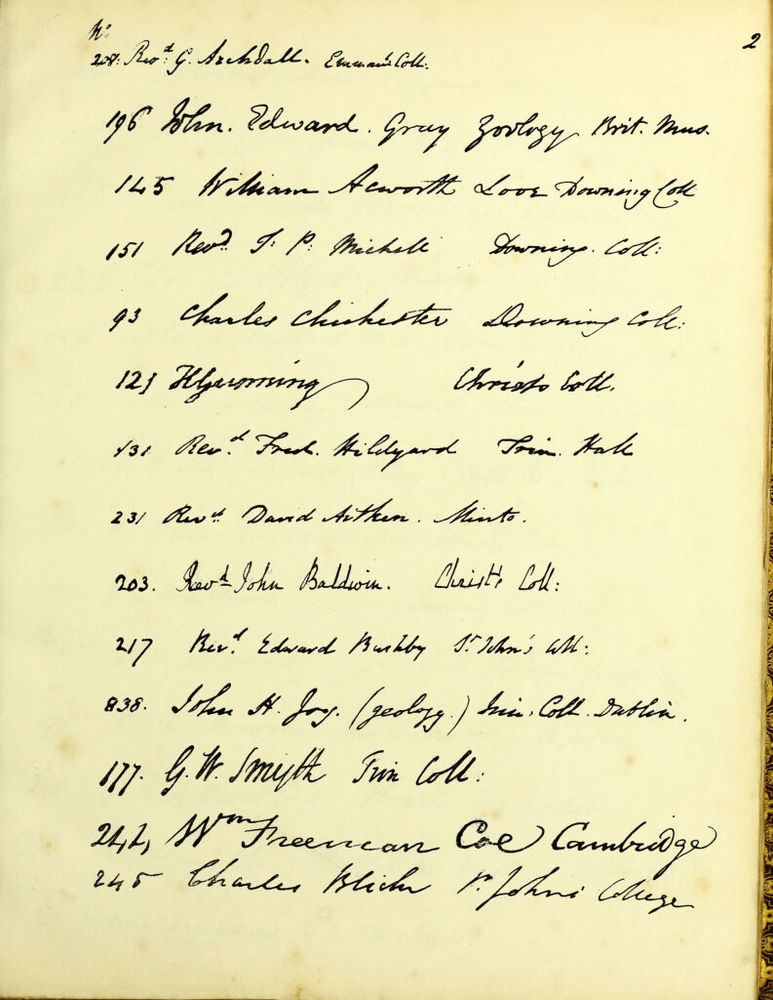 No. 2
208. Revd. G. Archdall. Emman. Coll.
196 John. Edward. Gray Zoology Brit. Mus.
145 William Acworth Love Downing Coll
151 Revd. P. Michell Downing. Coll:
93 Charles Chichester Downing Coll:
121 Christs Coll.
131 Revd. Fred. Hildyard Trin. Hall
231 Revd. David Aitken. Minto.
203. Revd John Baldwin. Christ's Coll:
217 Revd. Edward Bushby St John's Coll:
838. John H. Joy. (geology.) Trin. Coll. Dublin.
177. G. W. Smyth Trin Coll:
244, Wm Freeman Coe Cambridge
245 Charles St. Johns College